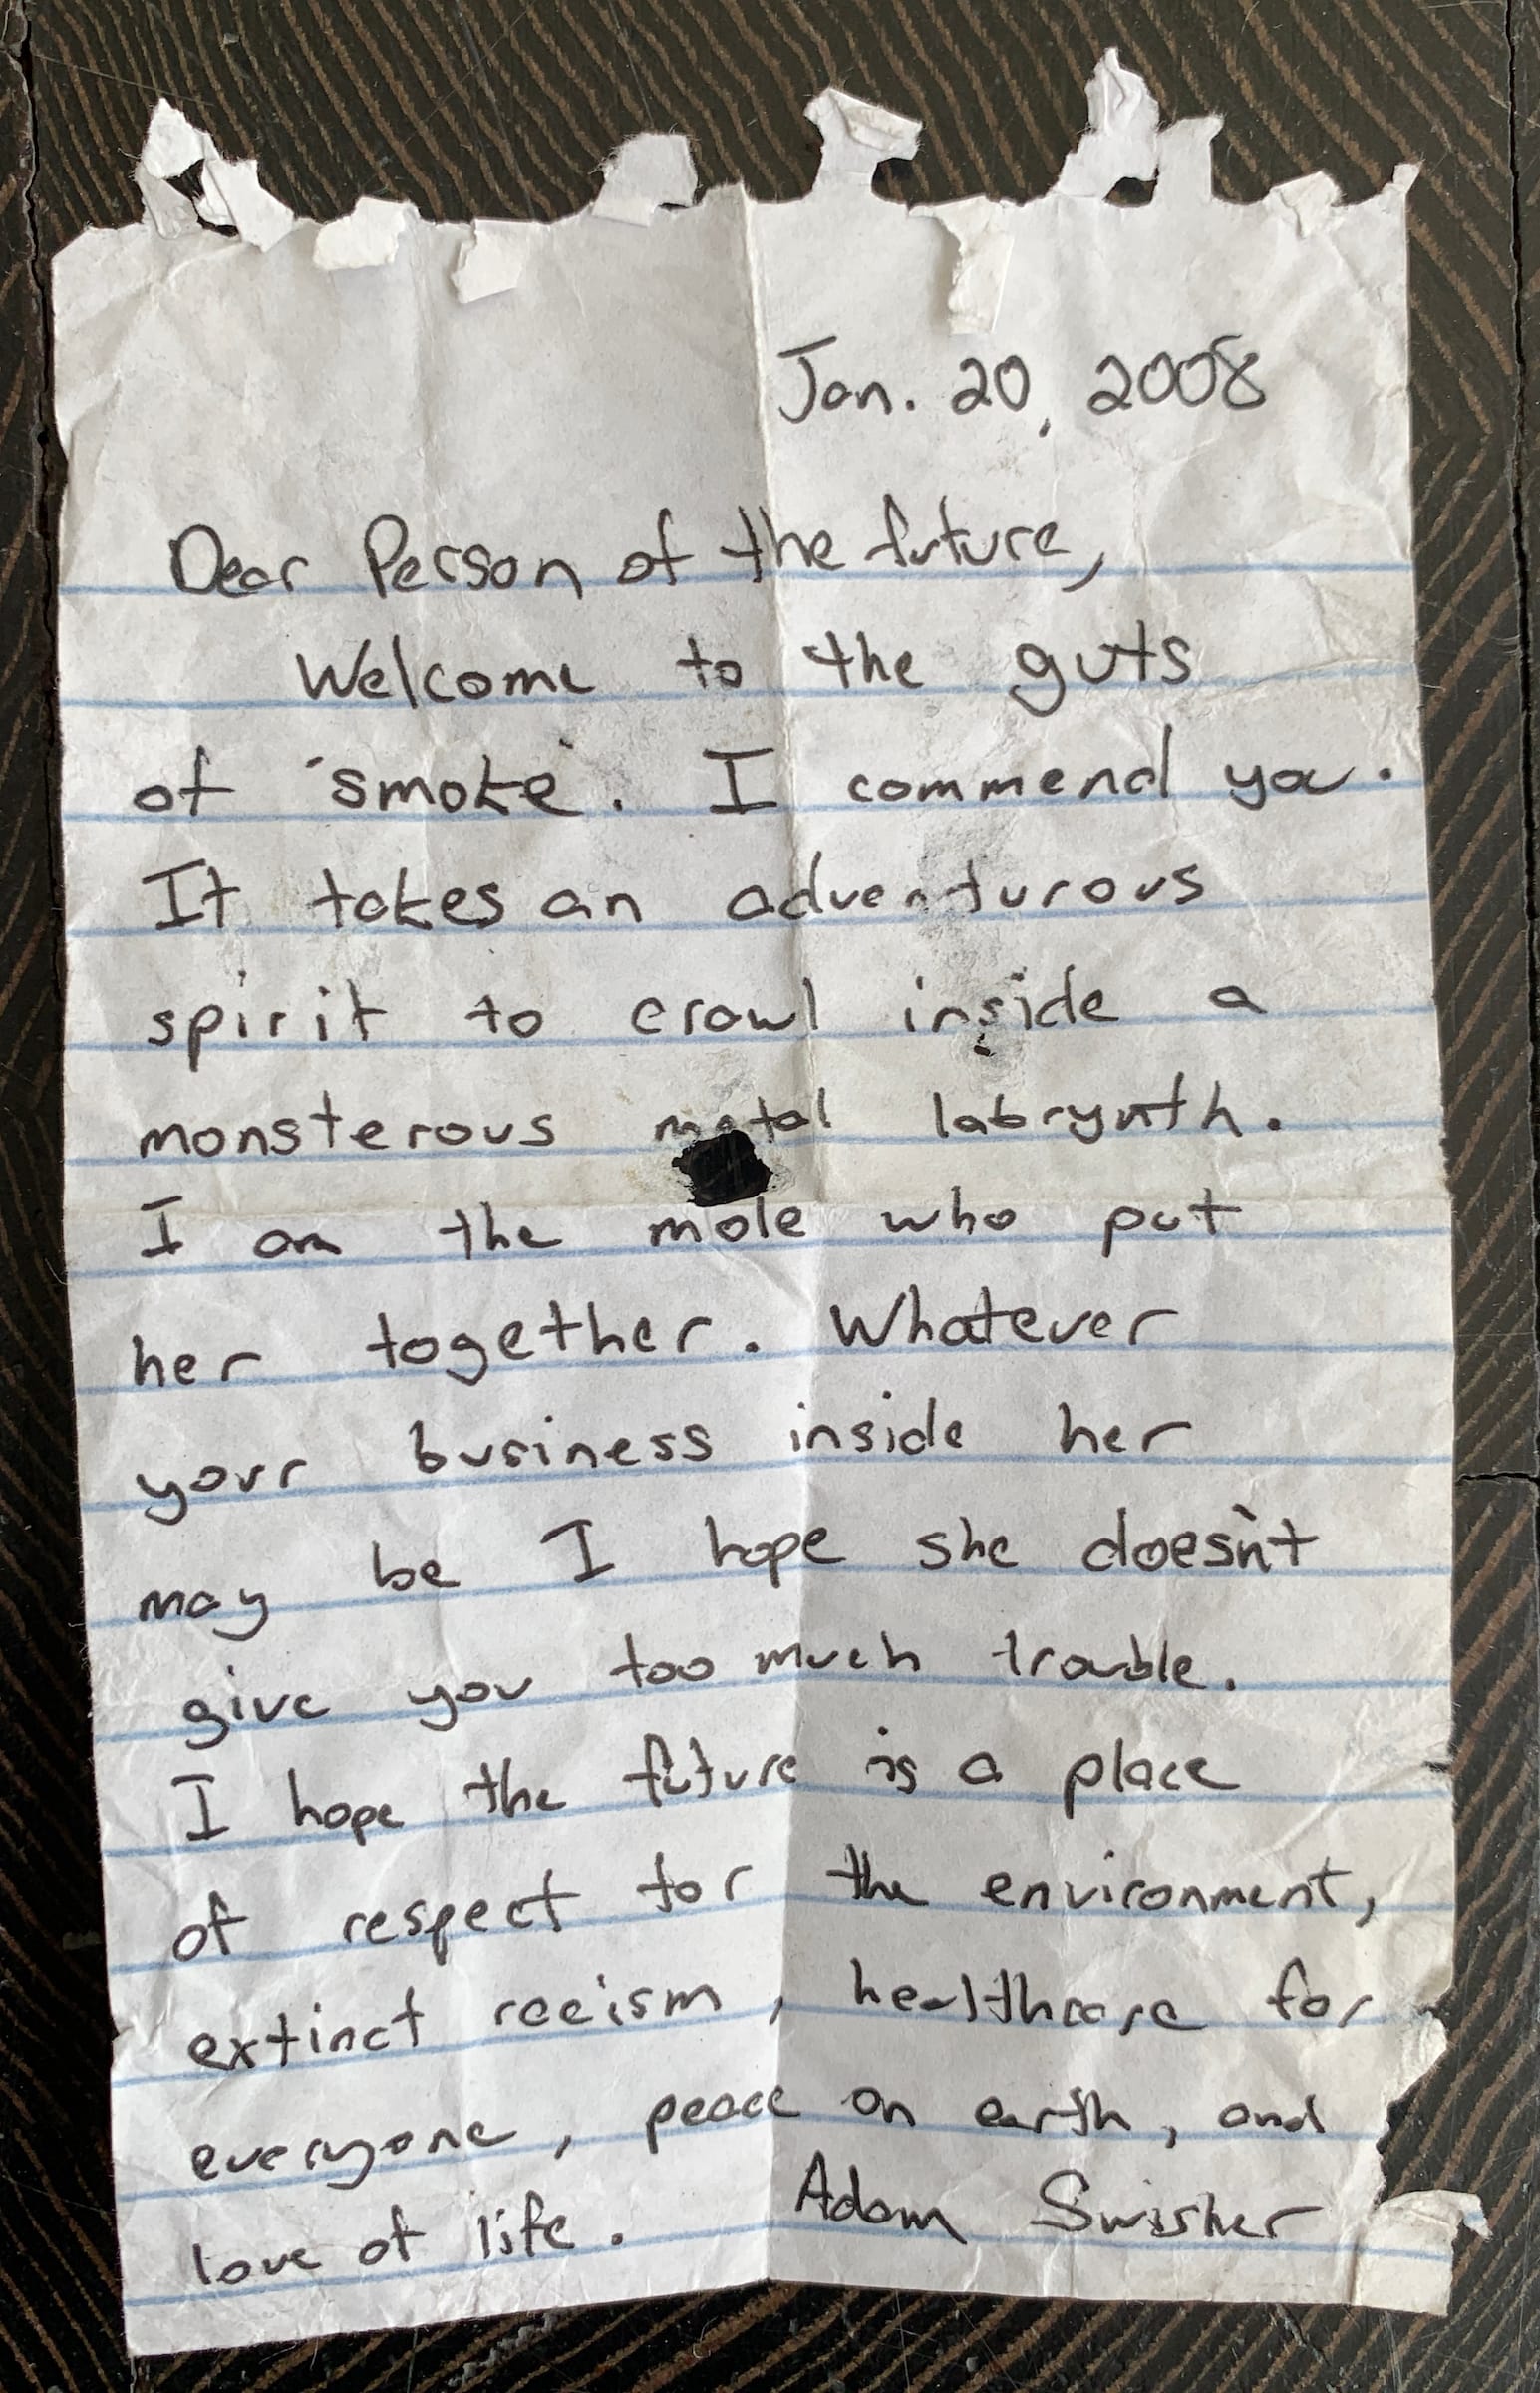 Jan. 20, 2008
Dear Person of the future,
Welcome to the guts
of 'smoke'. I commend you.
It takes an adventurous
spirit to crawl inside a
monsterous metal labrynth.
I am the mole who put
her together. Whatever
your business inside her
may be I hope she doesn't
give you too much trouble.
I hope the future is a place
of respect for the environment,
extinct racism, healthcare for
everyone, peace on earth, and
love of life. Adam Swisher